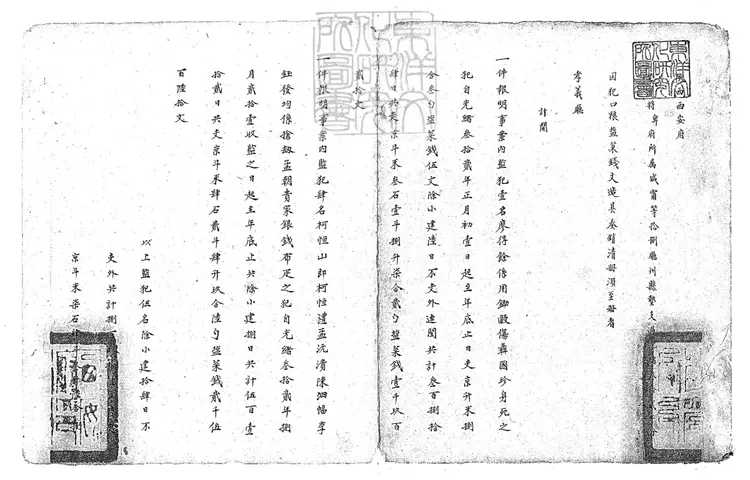 西安府
將卑府所属咸甯等拾捌廳州縣墊支
囚犯口粮盐菜錢文造具奏銷清册湏至册者
計開
孝義廳
一件報明事案内監犯壹名廖得餘傷用鋤毆傷龔因珍身死之
犯自光緒叁拾貳年正月初壹日起至年底止日支京升米捌
合叁勺盐菜錢伍文除小建陸日不支外連閏共計叁百捌拾
肆日共支京斗米叁石壹斗捌升柒合貳勺盐菜錢壹千玖百
貳拾文
一件報明事案内監犯肆名柯恒山即柯恒澧孟沅濆陳泗幅李
鈺發均係搶刼孟朝貴家銀錢布疋之犯自光緒叁拾貳年捌
月貳拾壹收監之日起至年底止共除小建捌日共計伍百壹
拾貳日共支京斗米肆石貳斗肆升玖合陸勺盐菜錢貳千伍
百陸拾文
以上監犯伍名除小建拾肆日不
支外共計捌
京斗米柒石肆